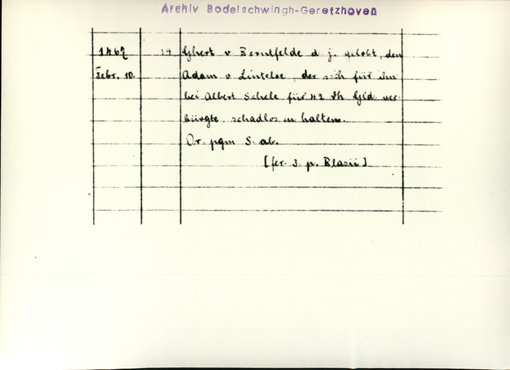 Archiv Bodelschwingh-Geretzhoven
1467 14 Ghert v Bernefelde d. j. gelobt, den
Febr. 10. Adam v Lintelse, der sich für ihn
bei Albert Schele für 42 Rh Gld ver
bürgte, schadlos zu halten.
Or. pgm S. ab.
[fer. 3. p. Blasii]